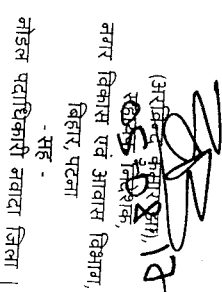 (अरविन्द कुमार झा),
निदेशक,
नगर विकास एवं आवास विभाग,
बिहार, पटना
- सह -
नोडल पदाधिकारी नवादा जिला |